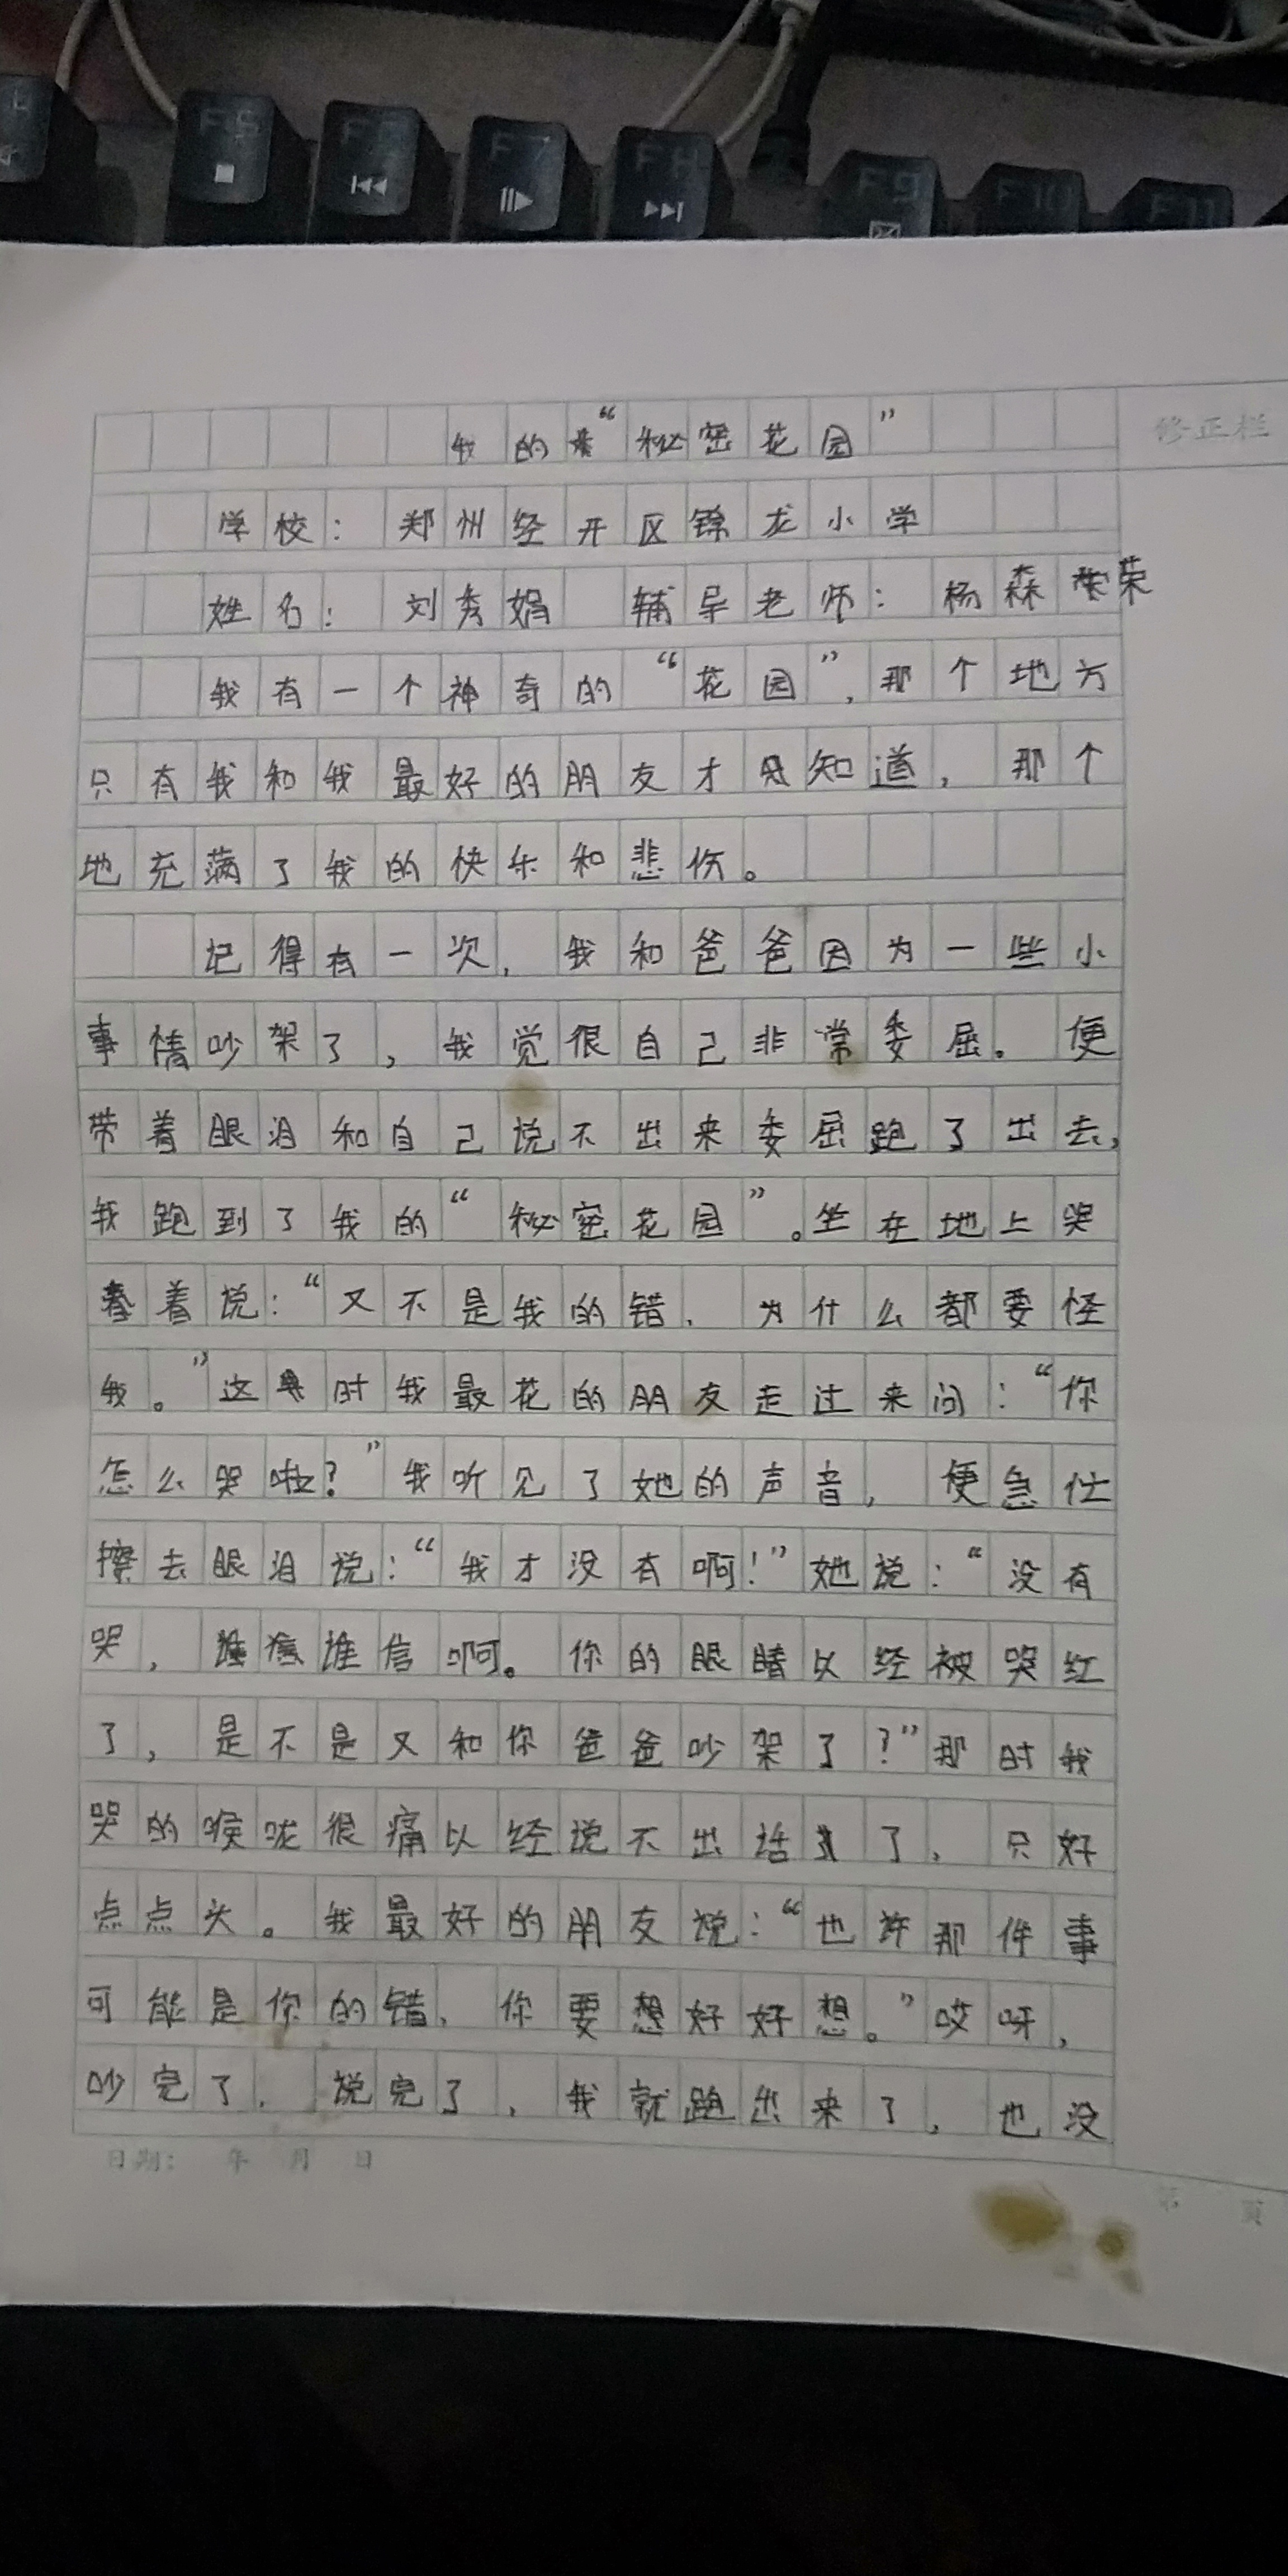 F5
F7
F8
F9
F10
F11
我的“秘密花园”
修正栏
学校：郑州经开区锦龙小学
姓名：刘秀娟 辅导老师：杨森荣
我有一个神奇的“花园”，那个地方
只有我和我最好的朋友才知道，那个
地充满了我的快乐和悲伤。
记得有一次，我和爸爸因为一些小
事情吵架了，我觉很自己非常委屈。便
带着眼泪和自己说不出来委屈跑了出去，
我跑到了我的“秘密花园”。坐在地上哭
着说：“又不是我的错，为什么都要怪
我。”这时我最花的朋友走过来问：“你
怎么哭啦？”我听见了她的声音，便急忙
擦去眼泪说：“我才没有啊！”她说：“没有
哭，谁信啊。你的眼睛以经被哭红
了，是不是又和你爸爸吵架了？”那时我
哭的喉咙很痛以经说不出话了，只好
点点头。我最好的朋友说：“也许那件事
可能是你的错，你要想好好想。”哎呀，
吵完了，说完了，我就跑出来了，也没
日期： 年 月 日
第 页